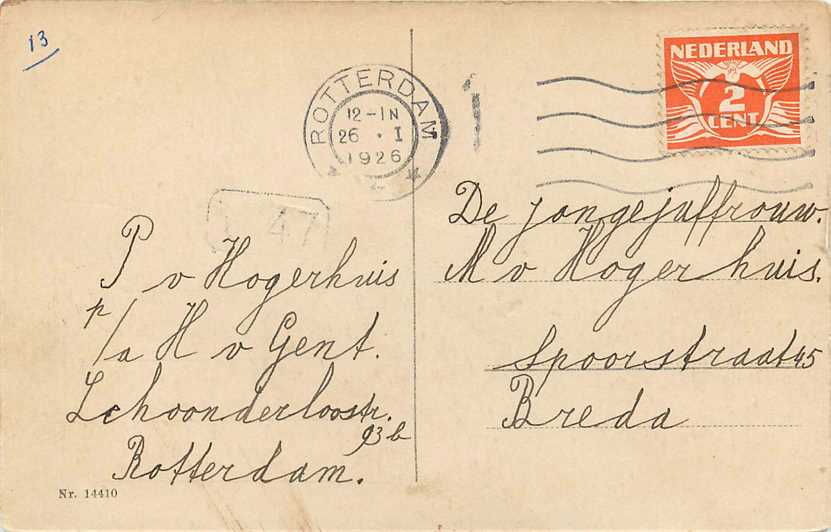 13
NEDERLAND
2
CENT
ROTTERDAM
12-1N
26 . I
1926
47
P v Hogerhuis
p/a H v Gent.
Schoonderloostr.
93 b
Rotterdam.
De jongejuffrouw.
M v Hogerhuis.
Spoorstraat 45
Breda
Nr. 14410